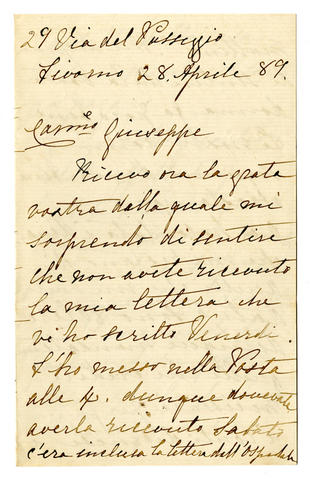 29 Via del Passeggio
Livorno 28. Aprile 89.
Carmo Giuseppe
Ricevo ora la grata
vostra dalla quale mi
sorprendo di sentire
che non avete ricevuto
la mia lettera che
ve ho scritto Venerdi.
L'ho messo nella Posta
alle 4. dunque dovevate
averla ricevuto Sabato
c'era inclusa la lettera dell'Ospedale